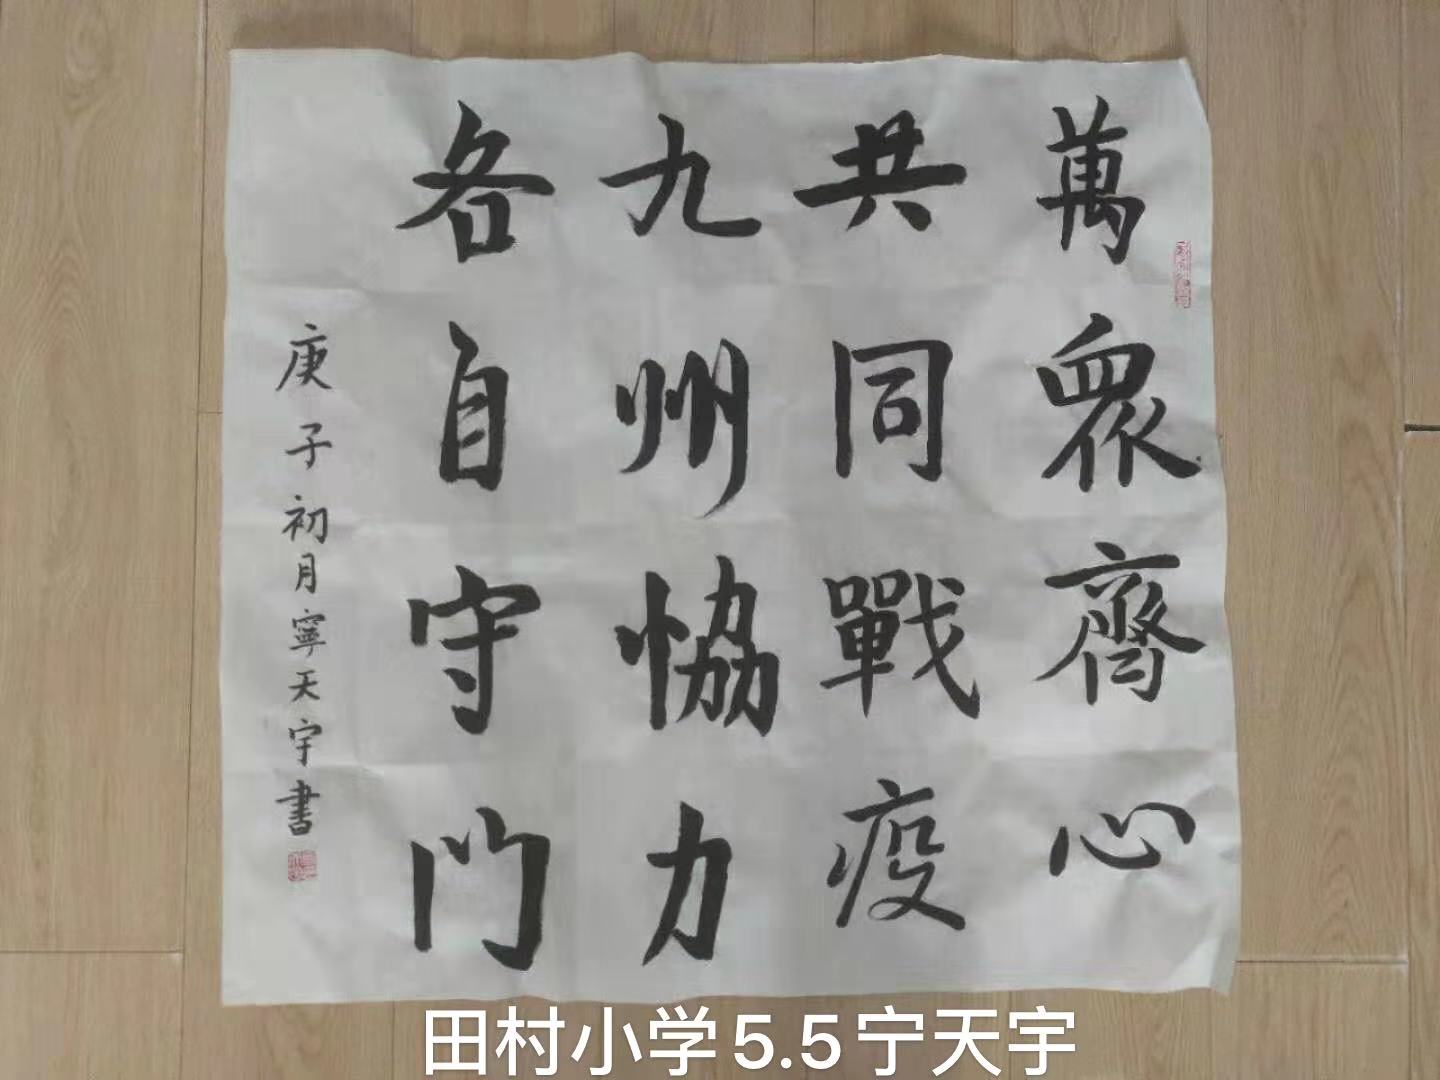 萬眾齊心
共同戰疫
九州恊力
各自守门
庚子初月寧天宇書
田村小学5.5宁天宇